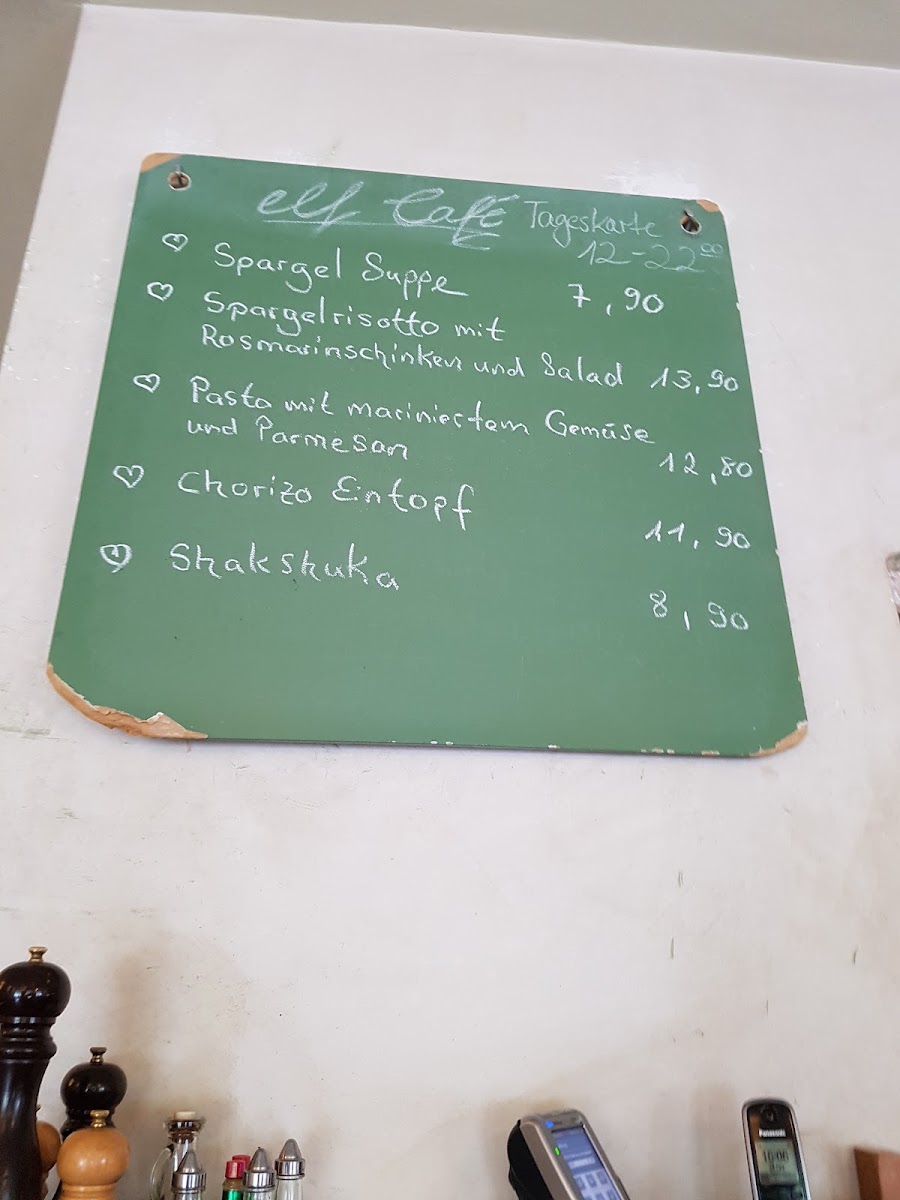 elf Café Tageskarte
12-22⁰⁰
Spargel Suppe 7,90
Spargelrisotto mit
Rosmarinschinken und Salad 13,90
Pasta mit mariniertem Gemüse
und Parmesan 12,80
Chorizo Entopf 11,90
Shakshuka 8,90
Panasonic